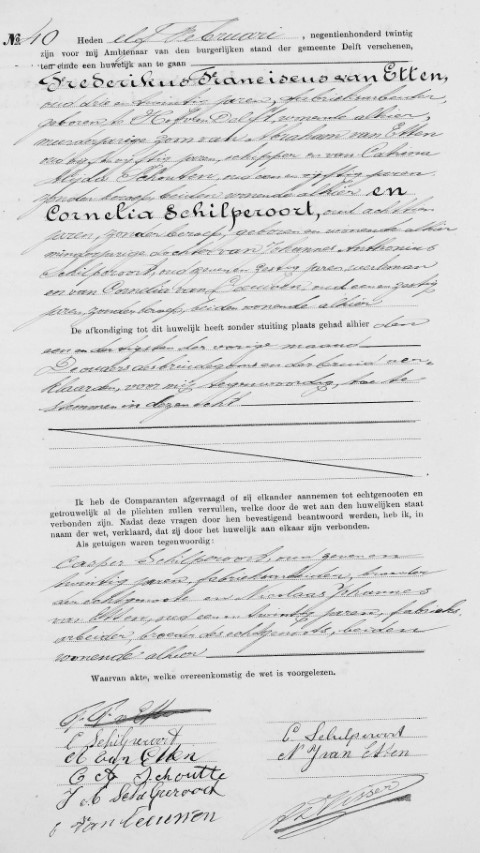 No. 40 Heden elf Februari, negentienhonderd twintig
zijn voor mij Ambtenaar van den burgerlijken stand der gemeente Delft verschenen,
ten einde een huwelijk aan te gaan
Frederikus Franciscus van Etten,
oud drie en twintig jaren, fabriekarbeider,
geboren te Hof van Delft, wonende alhier,
meerderjarige zoon van Abraham van Etten
oud vijftig jaren, schipper en van Catrina
Alyda Schouten, oud een en vijftig jaren
zonder beroep, beiden wonende alhier en
Cornelia Schilperoort, oud achttien
jaren, zonder beroep, geboren en wonende alhier
minderjarige dochter van Johannes Anthonius
Schilperoort, oud zeven en zestig jaren, werkman
en van Cornelia van Leeuwen, oud een en zestig
jaren, zonder beroep, beiden wonende alhier
De afkondiging tot dit huwelijk heeft zonder stuiting plaats gehad alhier den
een en dertigsten der vorige maand.
De ouders des bruidegoms en der bruid ver-
klaarden, voor mij tegenwoordig, toe te
stemmen in dezen echt
Ik heb de Comparanten afgevraagd of zij elkander aannemen tot echtgenooten en
getrouwelijk al de plichten zullen vervullen, welke door de wet aan den huwelijken staat
verbonden zijn. Nadat deze vragen door hen bevestigend beantwoord werden, heb ik, in
naam der wet, verklaard, dat zij door het huwelijk aan elkaar zijn verbonden.
Als getuigen waren tegenwoordig:
Casper Schilperoort, oud zeven en
twintig jaren, fabriekarbeider, broeder
der echtgenoote en Nicolaas Johannes
van Etten, oud een en twintig jaren, fabriek
arbeider, broeder des echtgenoots, beiden
wonende alhier
Waarvan akte, welke overeenkomstig de wet is voorgelezen.
F. F. v Etten
C Schilperoort
C Schilperoort
A van Etten
N J van Etten
C A Schoutte
J A Schilperoort
C van Leeuwen
Visser